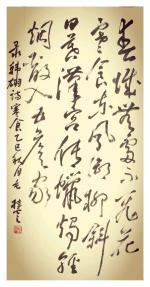 春城無處不飛花
寒食東風御柳斜
日暮漢宮傳蠟燭輕
烟散入五侯家
录韩翃詩寒食乙巳秋月